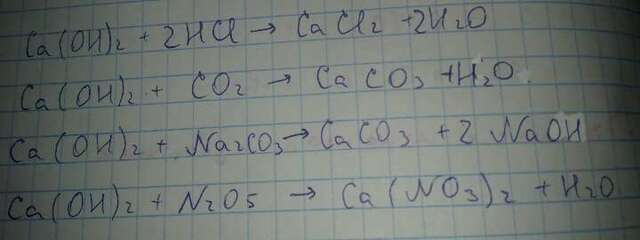 Ca(OH)2 + 2HCl → CaCl2 + 2H2O
Ca(OH)2 + CO2 → CaCO3 + H2O.
Ca(OH)2 + Na2CO3 → CaCO3 + 2 NaOH
Ca(OH)2 + N2O5 → Ca(NO3)2 + H2O